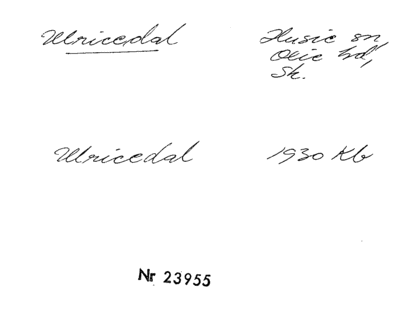 Ulricedal
Husie sn,
Oxie hd,
Sk.
Ulricedal 1930 Kb
Nr 23955